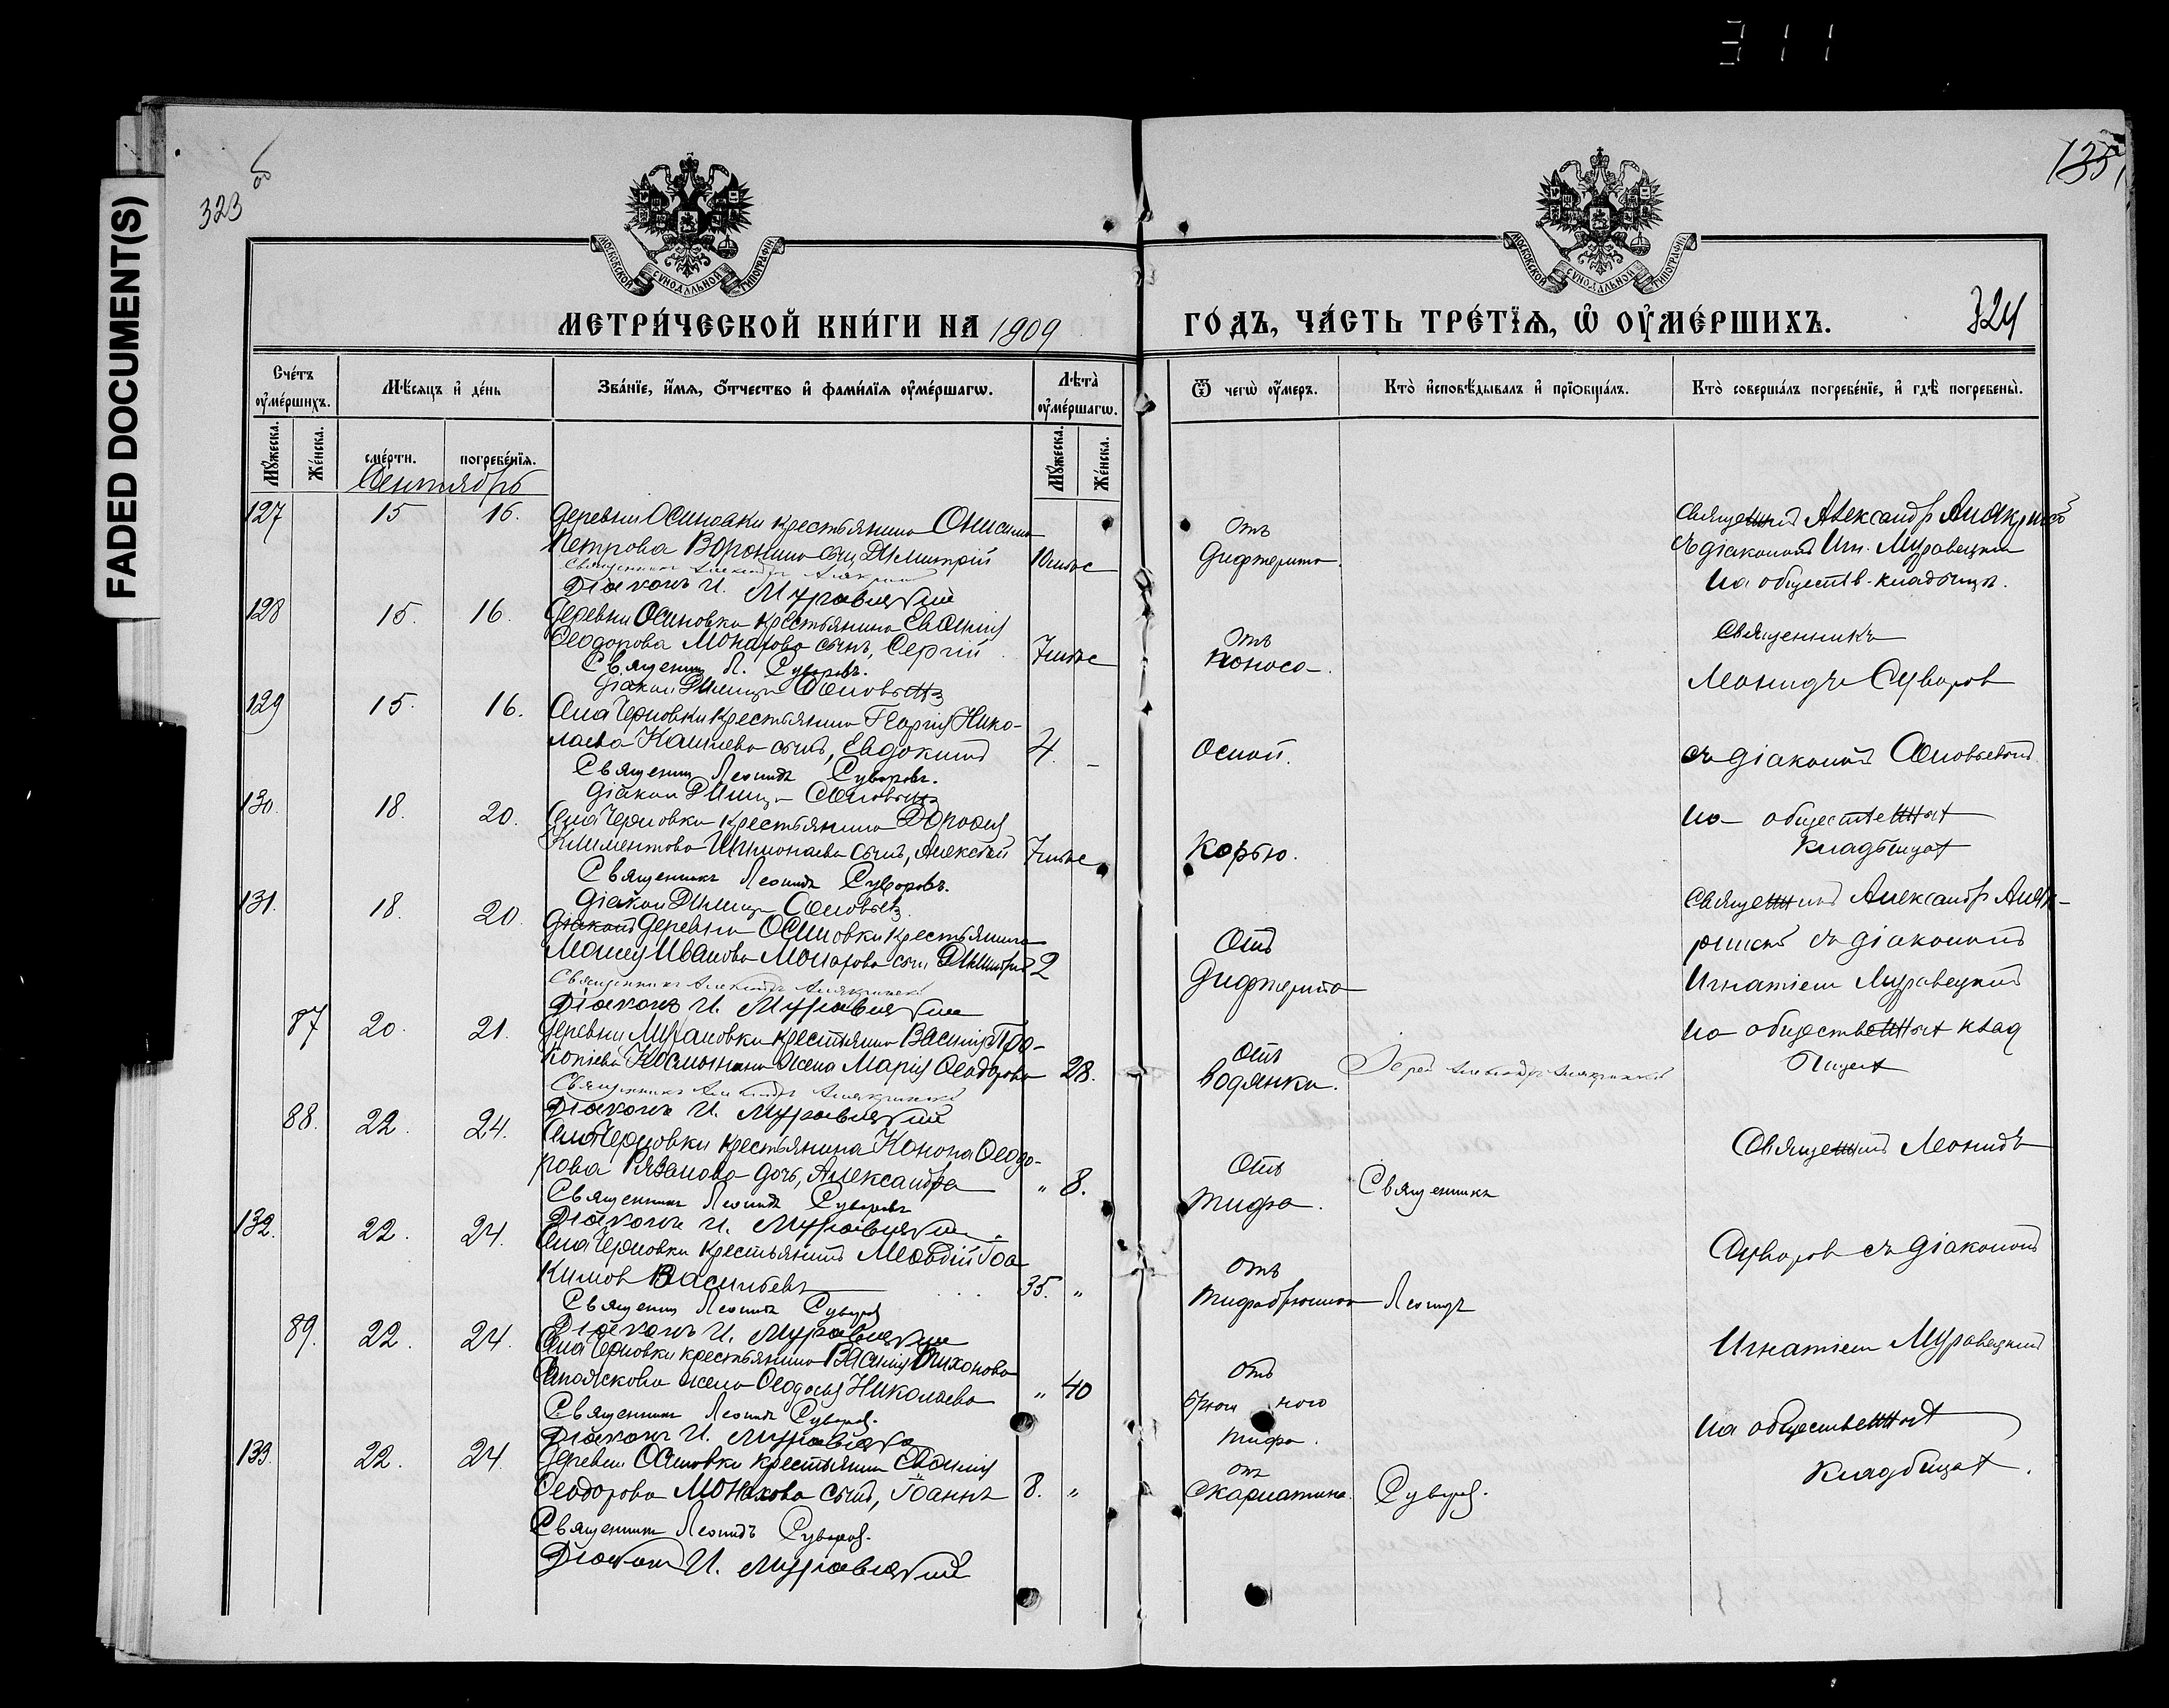 311
FADED DOCUMENT(S)
323
135
МОСКОВСКОЙ СѴНОДАЛЬНОЙ ТИПОГРАФІИ
МОСКОВСКОЙ СѴНОДАЛЬНОЙ ТИПОГРАФІИ
МЕТРИ́ЧЕСКОЙ КНИ́ГИ НА 1909
ГО́ДЪ, ЧА́СТЬ ТРЕ́ТЇѦ, Ѡ҆ ОУ҆МЕ́РШИХЪ.
324
Счéтъ оу҆мéршихъ.
Мѣ́сяцъ и҆ дéнь
Звáнїе, и҆́мя, ѻ҆́тчество и҆ фамѝлїя оу҆мéршагѡ.
Лѣтà оу҆мéршагѡ.
Ѿ чегѡ̀ оу҆́меръ.
Кто̀ и҆сповѣ́дывалъ и҆ прїѡбщáлъ.
Кто̀ совершáлъ погребéнїе, и҆ гдѣ̀ погребены̀.
Мꙋ́жеска.
Жéнска.
смéрти.
погребéнїя.
Мꙋ́жеска.
Жéнска.
Сентябрь
127 15 16. Деревни Осиновки крестьянина Онисима
Петрова Воронина сынъ Димитрій 10 мѣс
Священникъ Александръ
Діаконъ И. Муравецкій
Отъ
Дифтерита
Священникъ Александръ
съ діакономъ Игн. Муравецким
на обществ. кладбищѣ.
128 15. 16. Деревни Осиновки крестьянина Евѳимія
Ѳеодорова Монахова сынъ, Сергій 7 мѣс
Священникъ Л. Суворовъ.
Діакон Димитр Соловьевъ
Отъ
поноса.
Священникъ
Леонидъ Суворов
129 15. 16. Села Черновки крестьянина Георгія Нико-
лаева сынъ, Евдокимъ 4. –
Священник Леонидъ Суворовъ.
Діакон Димитр Соловьевъ
Оспой.
съ діаконом Соловьевымъ
130. 18. 20. Села Черновки крестьянина Дороѳея
Климентова сынъ, Алексѣй 7 мѣс
Священникъ Леонидъ Суворовъ.
Діакон Димитр Соловьевъ
Корью.
на общественномъ
кладбищѣ
131. 18. 20. Деревни Осиновки крестьянина
Моисея Иванова Монахова сынъ Димитрій 2
Священникъ Александръ
Діаконъ И. Муравецкій
Отъ
Дифтерита
Священникъ Александръ
съ діакономъ
Игнатіем Муравецким
на общественномъ клад
бищѣ
87 20. 21. Деревни крестьянина Василія Про-
копіева жена Марія Ѳеодорова 28.
Священникъ Александръ
Діаконъ И. Муравецкій
Отъ
водянки.
Іерей Александръ
88. 22. 24. Села Черновки крестьянина Конона Ѳеодо-
рова Рязанова дочь, Александра " 8.
Священникъ Леонидъ Суворовъ
Діаконъ И. Муравецкій
Отъ
тифа.
Священникъ
Священникъ Леонидъ
132. 22. 24. Села Черновки крестьянинъ Меѳодій Іоа
кимов Васильевъ 35. "
Священник Леонидъ Суворов
Діаконъ И. Муравецкій
Отъ
тифа брюшного
Леонидъ
Суворов съ діакономъ
89. 22. 24. Села Черновки крестьянина Василія Тихонова
жена Ѳеодосія Николаева " 40
Священникъ Леонидъ Суворов.
Діаконъ И. Муравецкій
Отъ
брюшного
тифа.
Игнатіем Муравецким
на общественномъ
кладбищѣ.
133. 22. 24. Деревни Осиновки крестьянина Евѳимія
Ѳеодорова Монахова сынъ, Іоаннъ 8. "
Священникъ Леонидъ Суворов.
Діаконъ И. Муравецкій
Отъ
скарлатины.
Суворов.